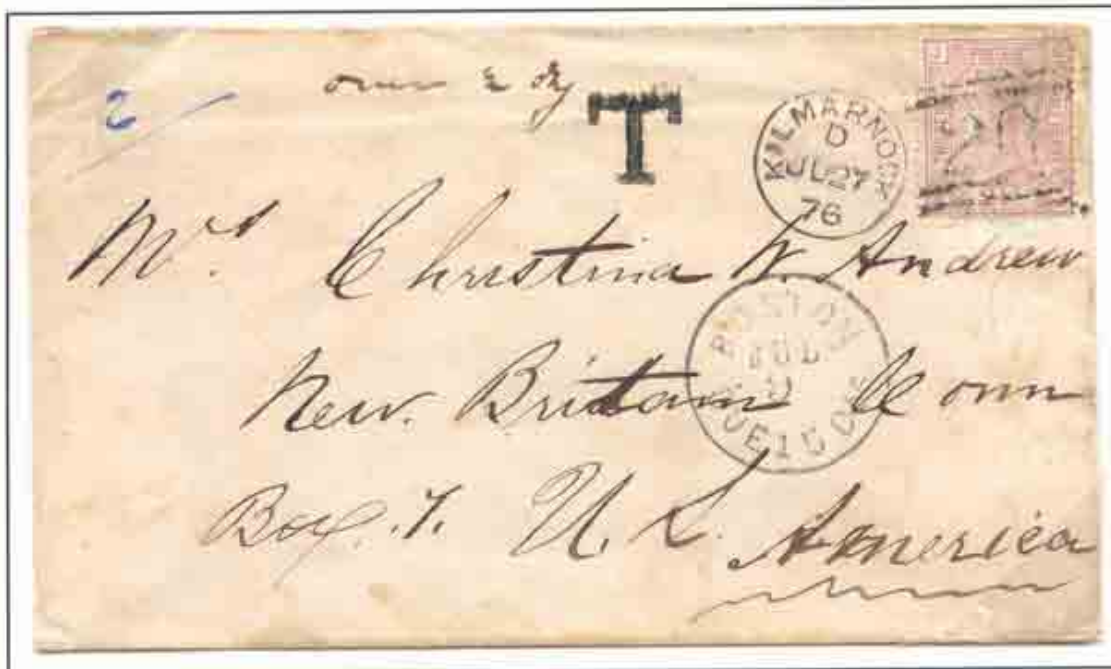 2
over ½ oz
T
KILMARNOCK
D
JL 27
76
Mrs Christina W. Andrew
BOSTON
JUL
DUE 15 CTS
New. Britain Conn
Box. 7. U. S. America